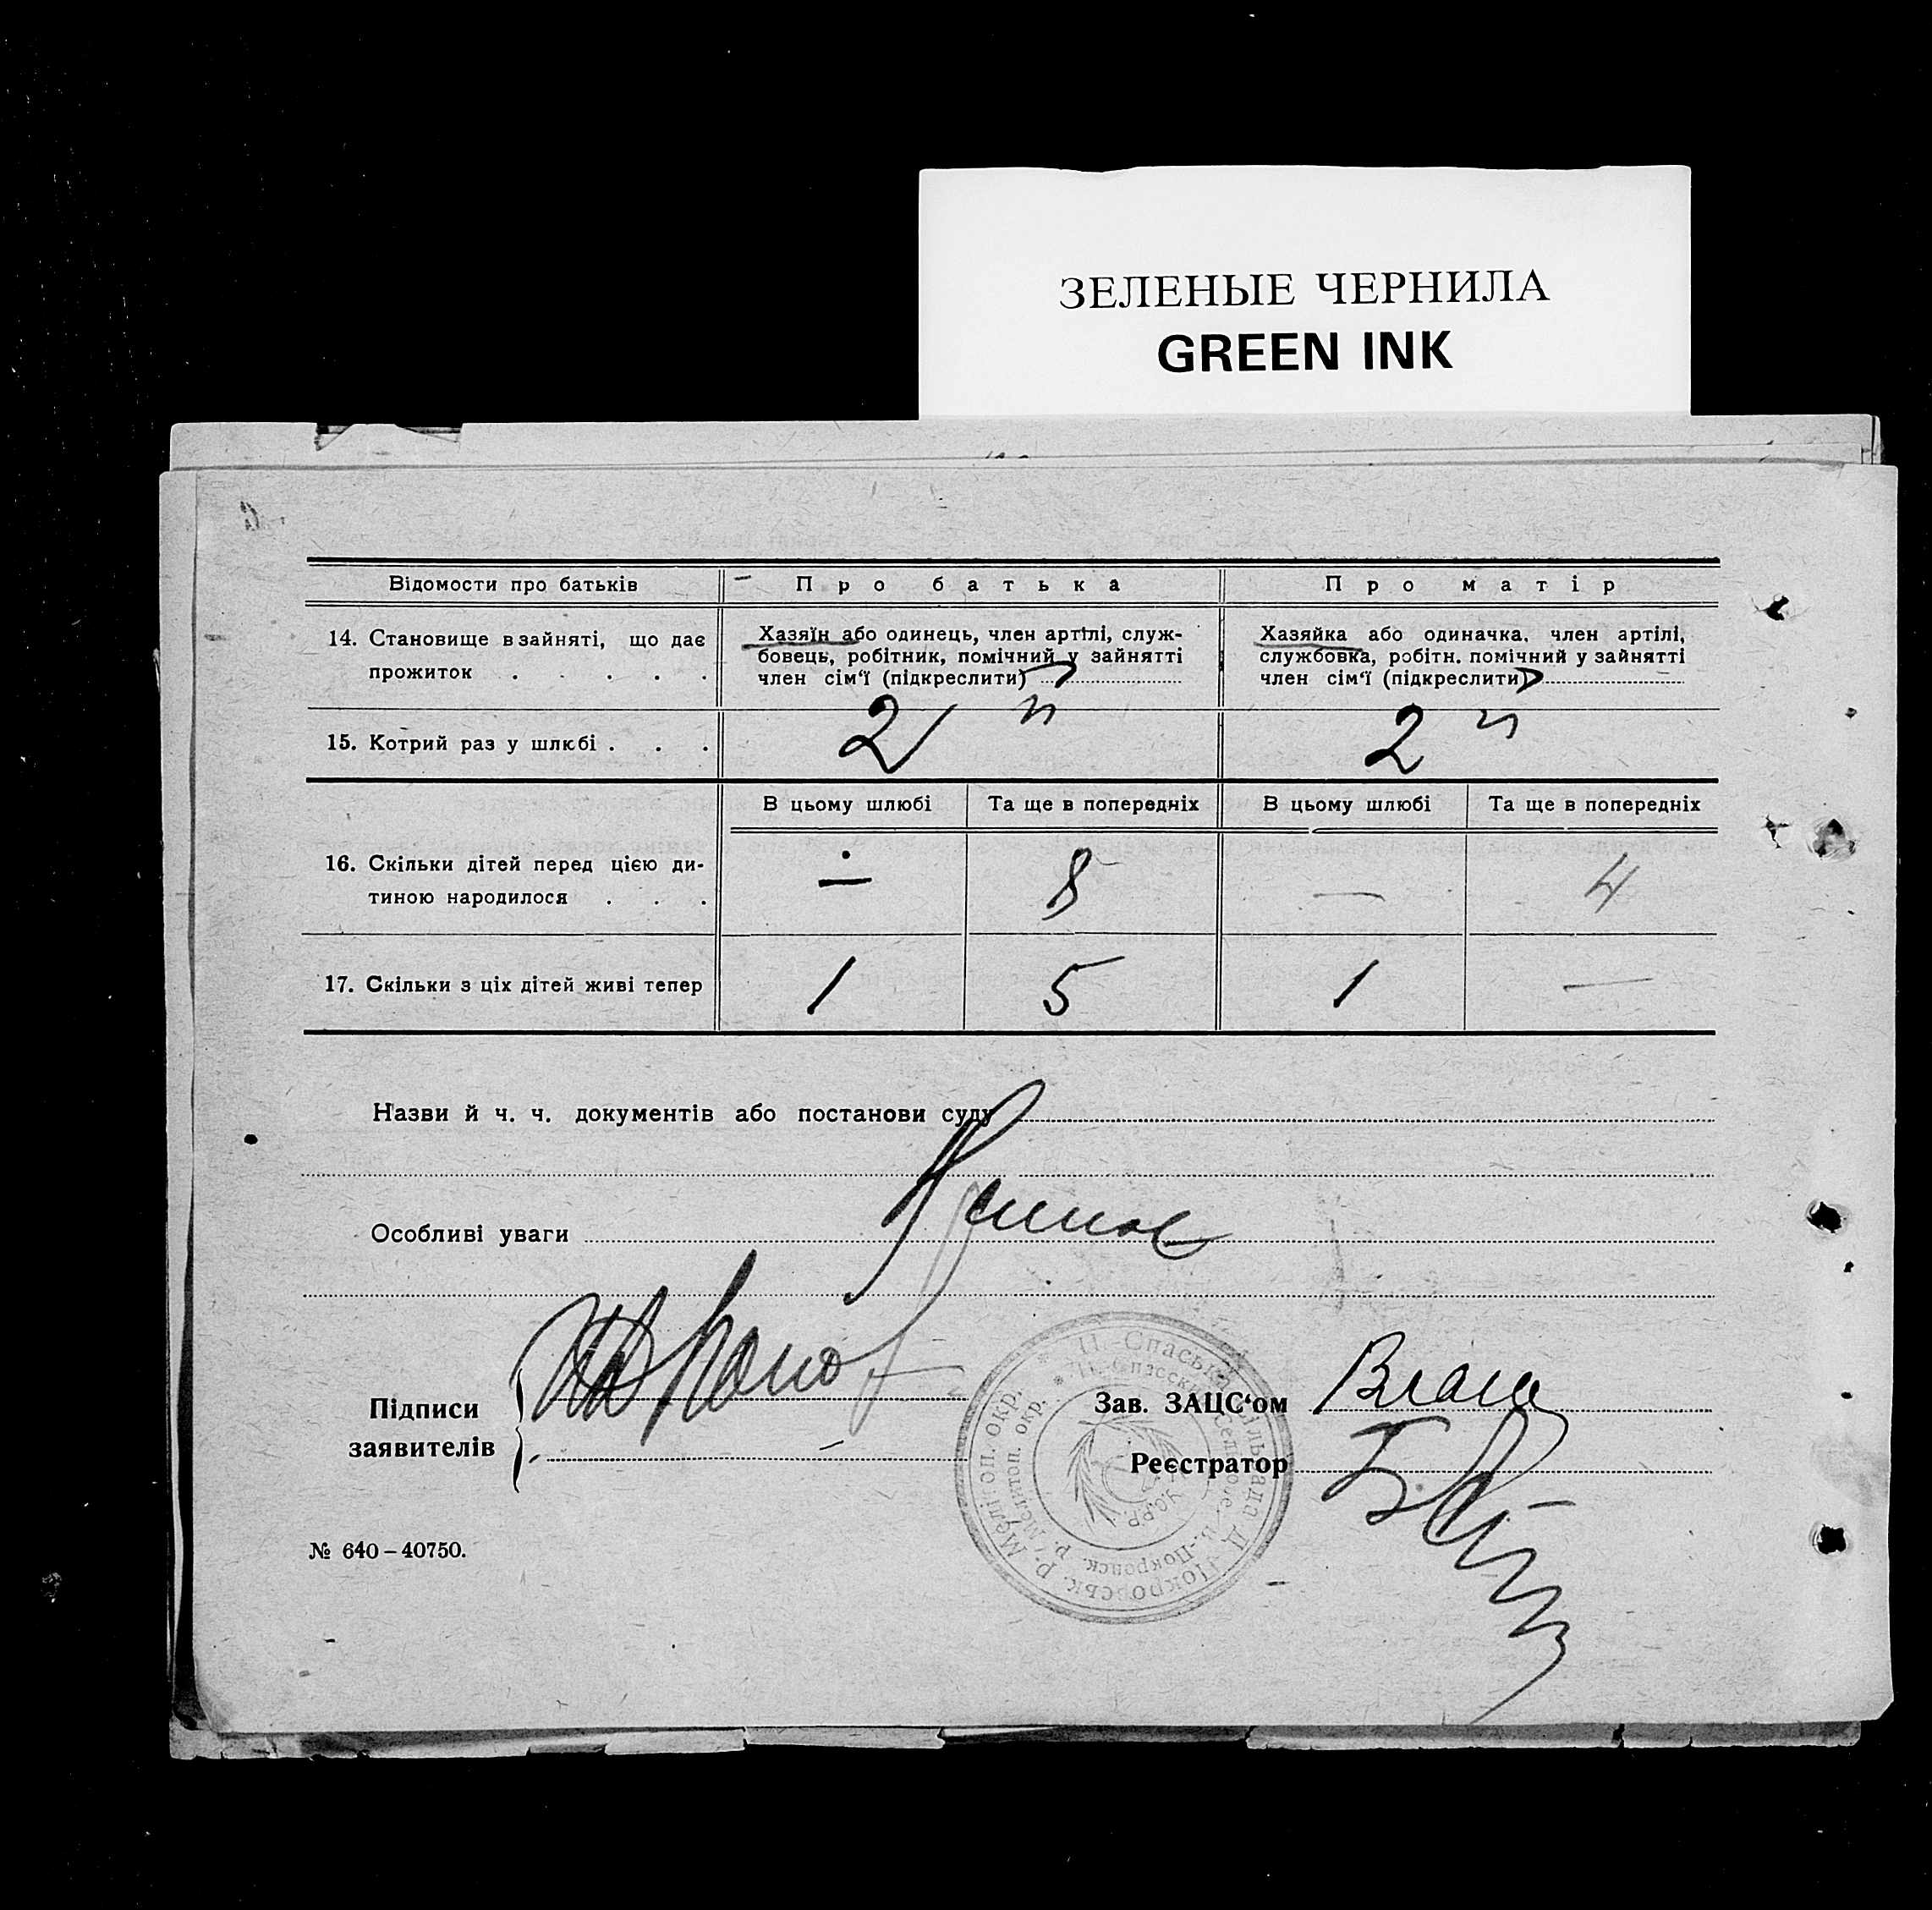 ЗЕЛЕНЫЕ ЧЕРНИЛА
GREEN INK
Відомости про батьків
Про батька
Про матір
14. Становище в зайняті, що дає
прожиток . . . . .
Хазяїн або одинець, член артілі, служ-
бовець, робітник, помічний у зайнятті
член сім‘ї (підкреслити)
Хазяйка або одиначка, член артілі,
службовка, робітн. помічний у зайнятті
член сім‘ї (підкреслити)
15. Котрий раз у шлюбі . . .
2
2
В цьому шлюбі
Та ще в попередніх
В цьому шлюбі
Та ще в попередніх
16. Скільки дітей перед цією ди-
тиною народилося . . .
—
8
—
4
17. Скільки з ціх дітей живі тепер
1
5
1
—
Назви й ч. ч. документів або постанови суду
Особливі уваги
Підписи
заявителів
Зав. ЗАЦС‘ом
Реєстратор
№ 640–40750.